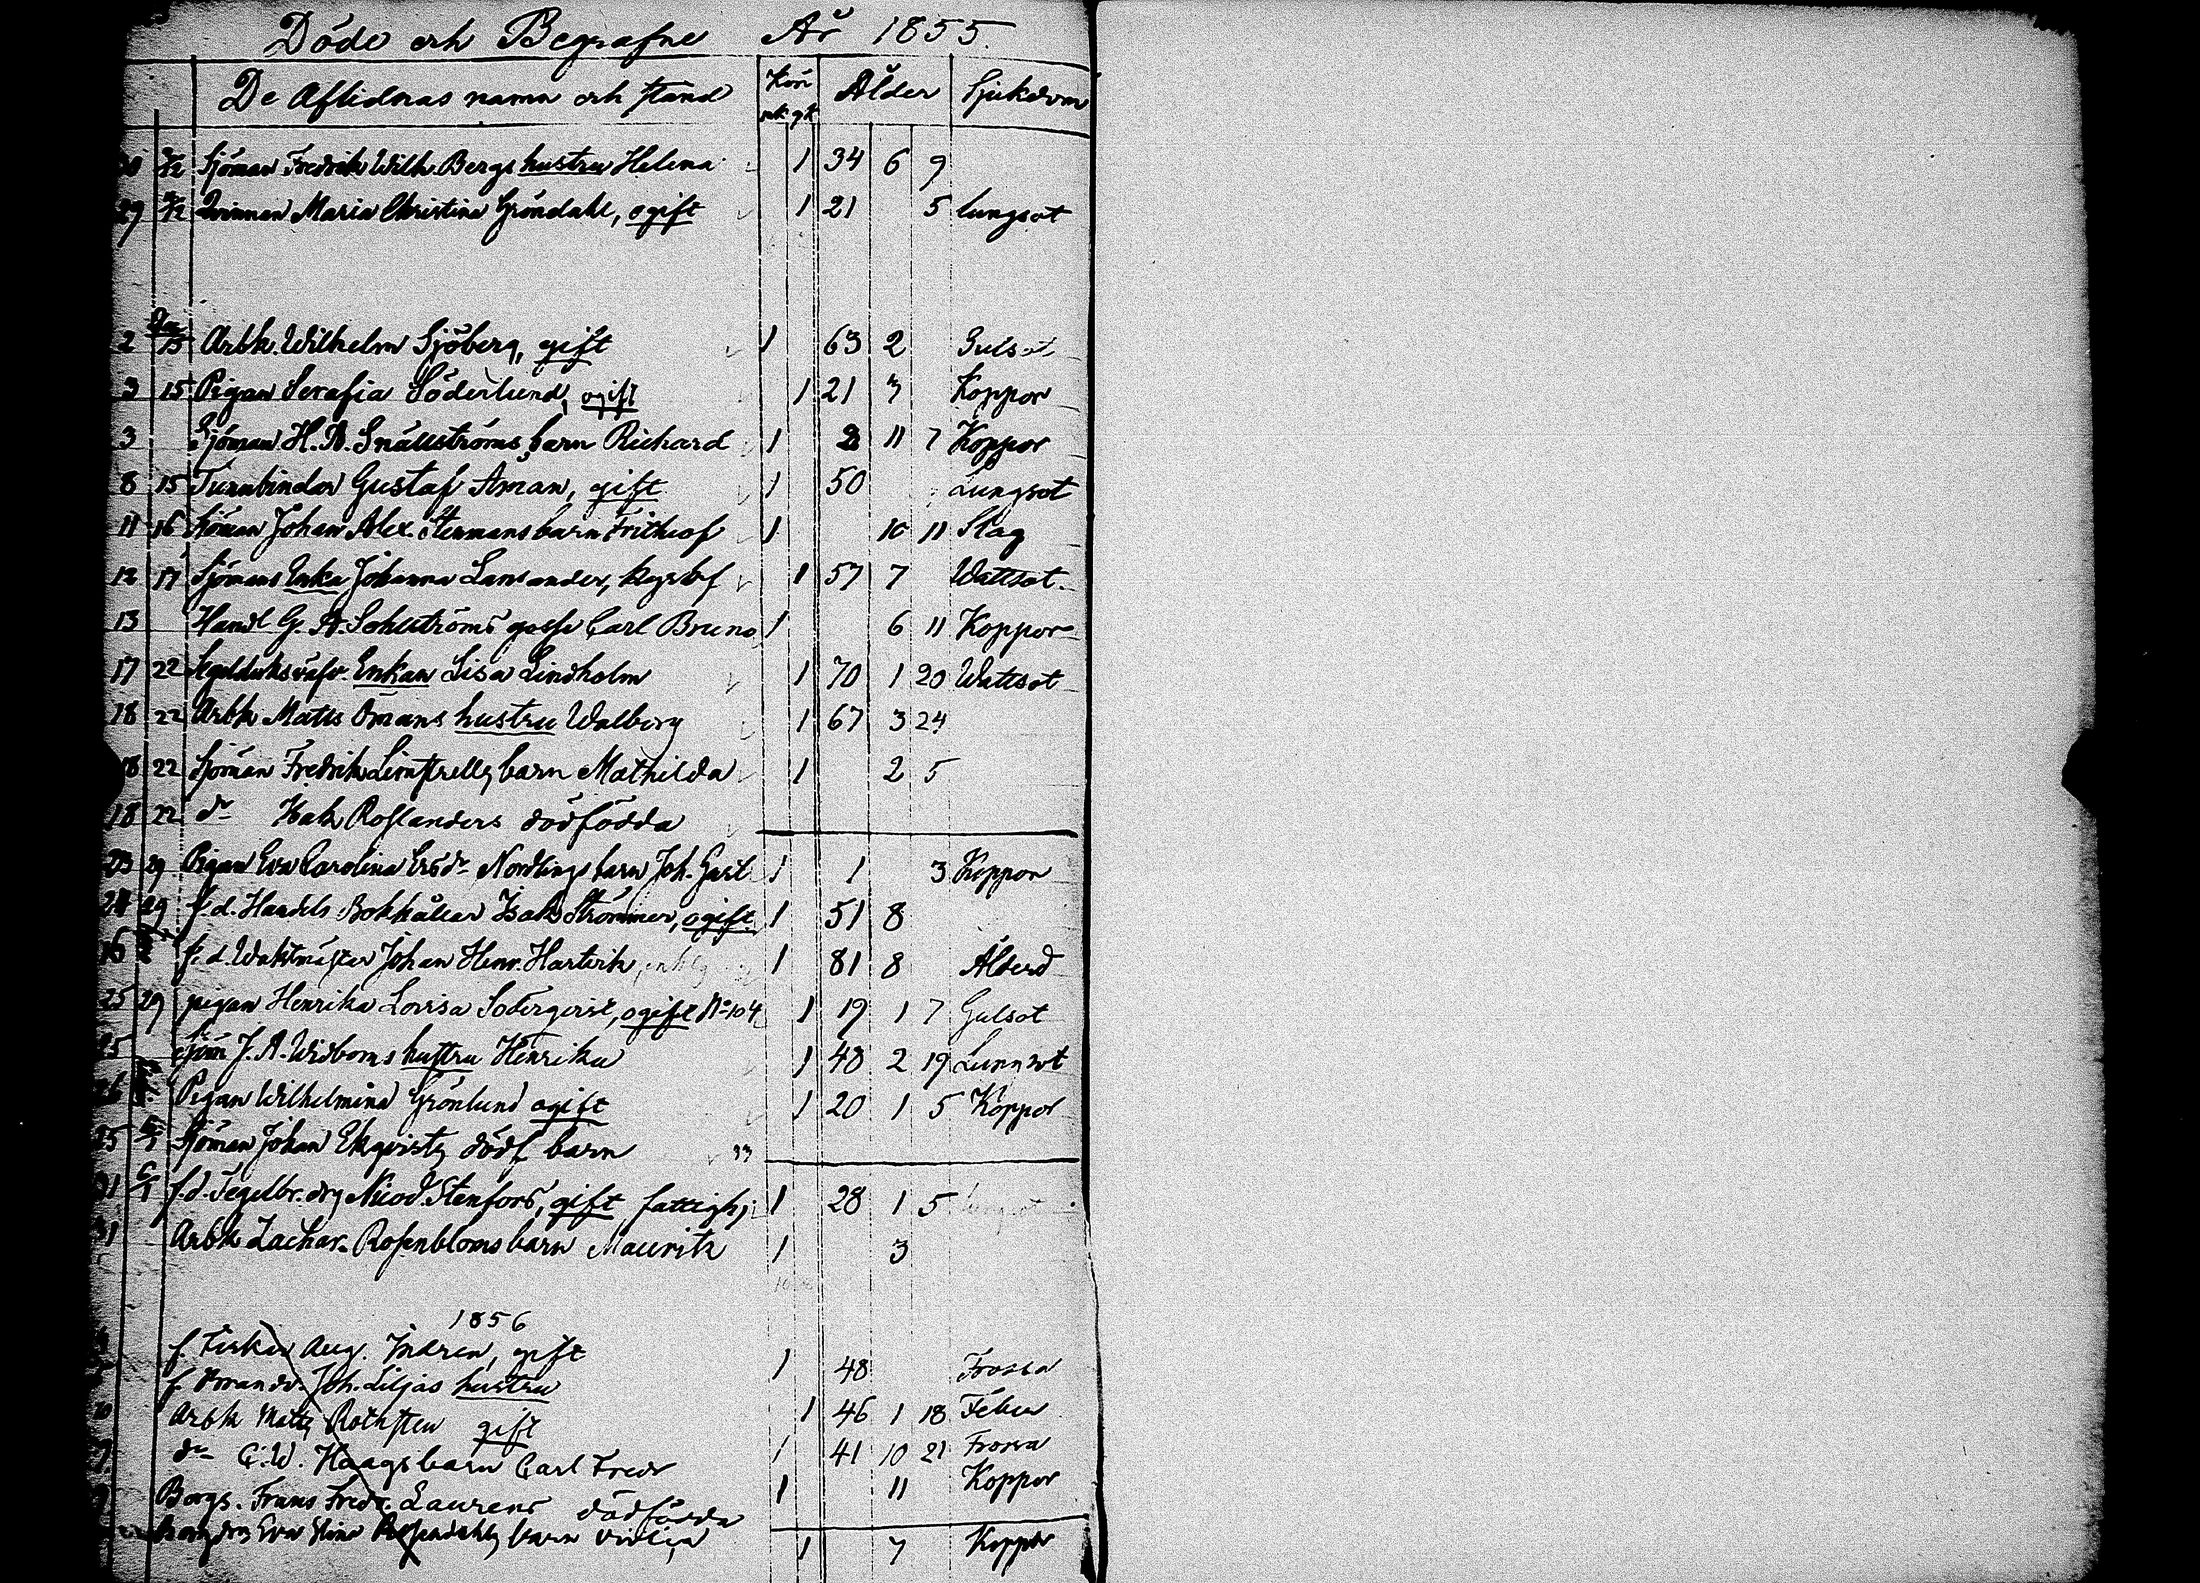 Döde och Begrafne År 1855.
De Aflidnas namn och stånd Kön Ålder Sjukdom
mk qk
Sjöman Fredrik Wilh. Bergs hustru Helena 1 34 6 9
29 Qvinnan Maria Christina Gröndahl, ogift 1 21 5 lungsot
2 Arbk. Wilhelm Sjöberg, gift 1 63 2 Gulsot
3 15 Pigan Serafia Söderlund, ogift 1 21 3 Koppor
3 Sjöman H. A. Snällströms barn Richard 1 2 11 7 Koppor
8 15 Tunnbindar Gustaf Åman, gift 1 50 Lungsot
11 16 Sjöman Johan Alex. Stenmans barn Frithiof 1 10 11 Slag
12 17 Sjömans Enka Johanna 1 57 7 Wattsot
13 Handl G. A. Sohlströms gosse Carl Bruno 1 6 11 Koppor
17 22 Enkan Lisa Lindholm 1 70 1 20 Wattsot
18 22 Arbk Matts Ömans hustru Walborg 1 67 3 24
18 22 Sjöman Fredrik barn Mathilda 1 2 5
18 22 do Isak Roslanders dödfödda
23 29 Pigan Eva Carolina Nordlings barn Joh. Gust 1 1 3 Koppor
24 29 f.d. Handels Bokhållar Isak Strömmer, ogift 1 51 8
f.d. Waktmästar Johan Henr. Hartvik 1 81 8 Ålderd
25 29 pigan Henrika Lovisa ogift No 104 1 19 1 7 Gulsot
25 Sjöm J. A. Widboms hustru Henrika 1 48 2 19 Lunnsot
26 Pigan Wilhelmina Grönlund ogift 1 20 1 5 Koppor
25 Sjöman Johan Ekqvists dödf barn
31 f.d. Tegelbr. drg Nicod. Stenfors, gift fattighj 1 28 1 5
31 Arbk Zachar. Rosenbloms barn Mauritz 1 3
1856
f. Aug. Indren, gift 1 48 Frossa
f. Joh. Liljas hustru 1 46 1 18 Feber
Arbk Matts Rothsten gift 1 41 10 21 Frossa
do C. W. Haags barn Carl Fredr 1 11 Koppor
Borgs. Frans Fredr. Laurens dödfödda
Eva Stina barn 1 7 Koppor